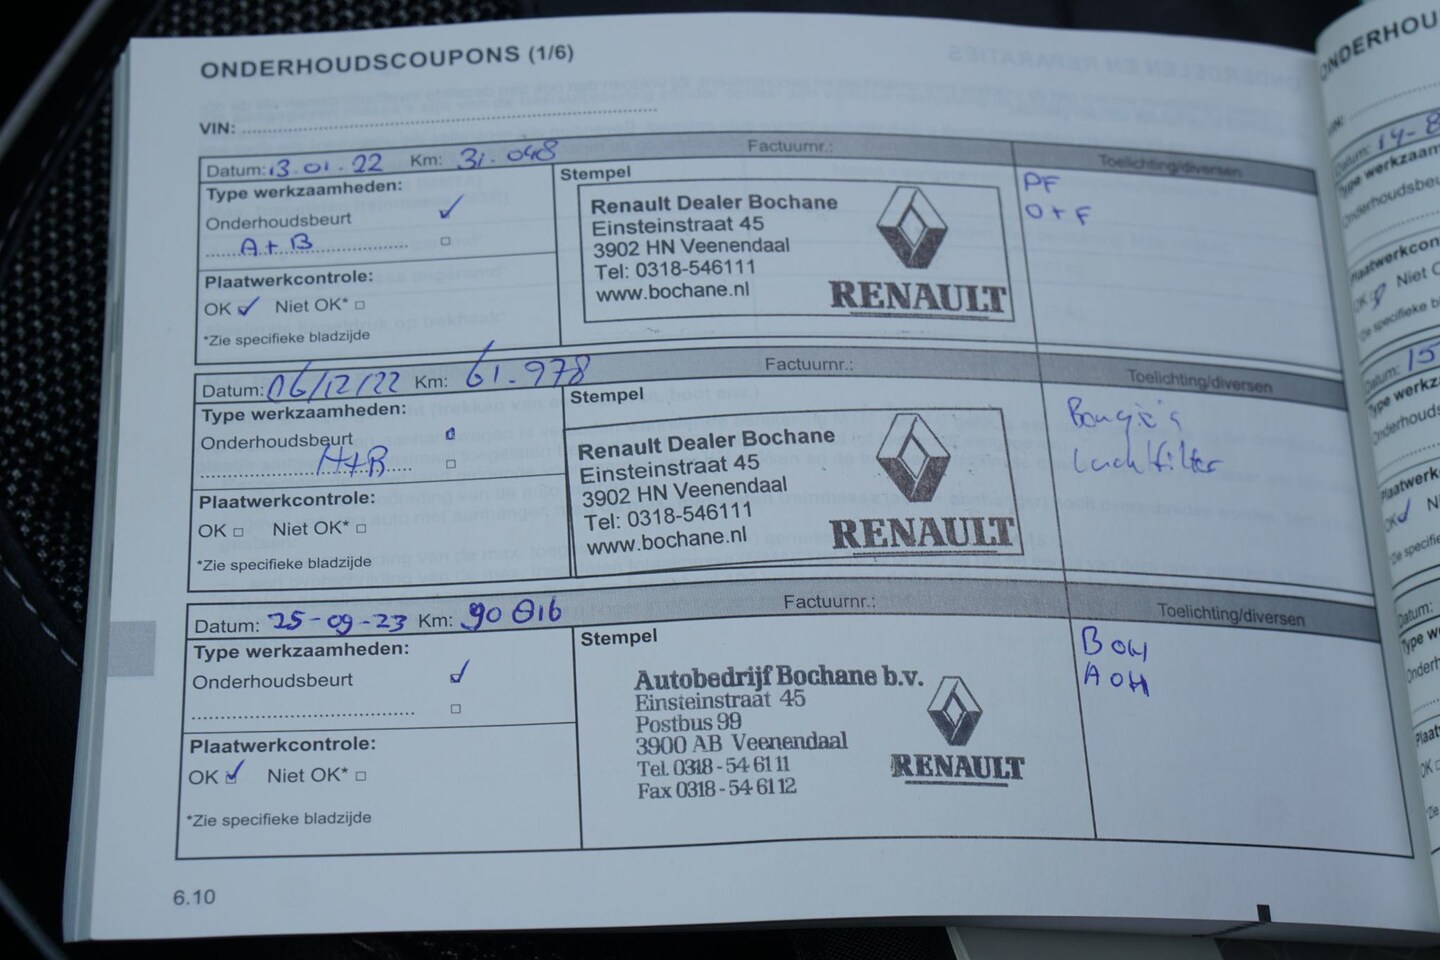 ONDERHOUDSCOUPONS (1/6)
VIN:
Datum: 13.01.22 Km: 31.048 Factuurnr.: Toelichting/diversen
Type werkzaamheden:
Onderhoudsbeurt
A+B
Plaatwerkcontrole:
OK Niet OK*
*Zie specifieke bladzijde
Stempel
Renault Dealer Bochane
Einsteinstraat 45
3902 HN Veenendaal
Tel: 0318-546111
www.bochane.nl
RENAULT
PF
O+F
Datum: 06/12/22 Km: 61.978 Factuurnr.: Toelichting/diversen
Type werkzaamheden:
Onderhoudsbeurt
A+B
Plaatwerkcontrole:
OK Niet OK*
*Zie specifieke bladzijde
Stempel
Renault Dealer Bochane
Einsteinstraat 45
3902 HN Veenendaal
Tel: 0318-546111
www.bochane.nl
RENAULT
Bougie's
Luchtfilter
Datum: 25-09-23 Km: 90 016 Factuurnr.: Toelichting/diversen
Type werkzaamheden:
Onderhoudsbeurt
Plaatwerkcontrole:
OK Niet OK*
*Zie specifieke bladzijde
Stempel
Autobedrijf Bochane b.v.
Einsteinstraat 45
Postbus 99
3900 AB Veenendaal
Tel. 0318 - 54 61 11
Fax 0318 - 54 61 12
RENAULT
B OH
A OH
6.10